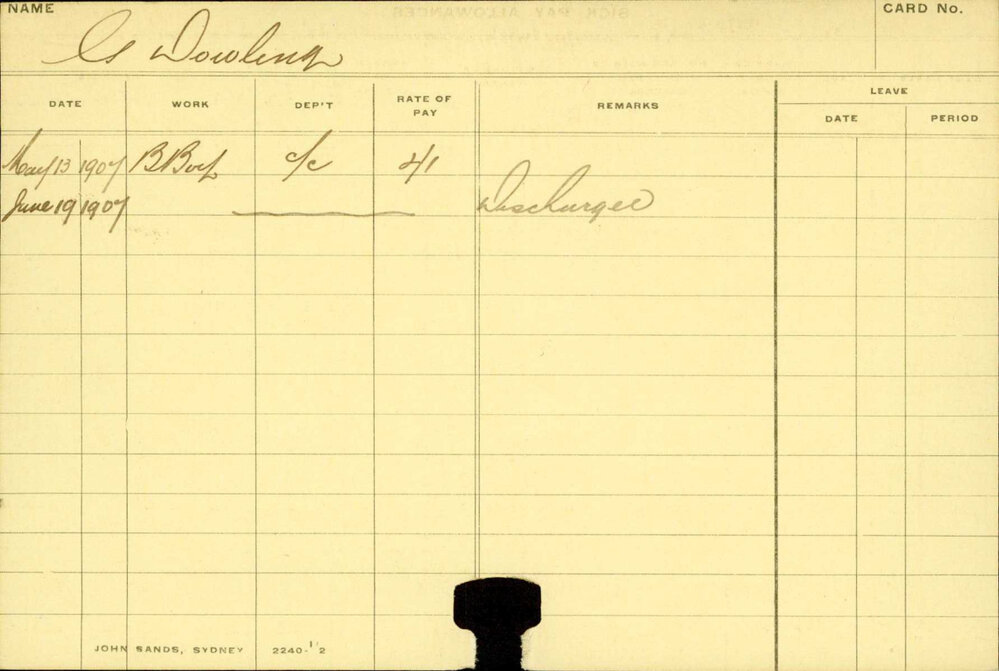 NAME
CARD No.
Dowling
DATE WORK DEP'T RATE OF PAY REMARKS LEAVE
DATE PERIOD
May 13 1907 B Boy c/c 4/1
June 19 1907 Discharged
JOHN SANDS, SYDNEY 2240-1/2